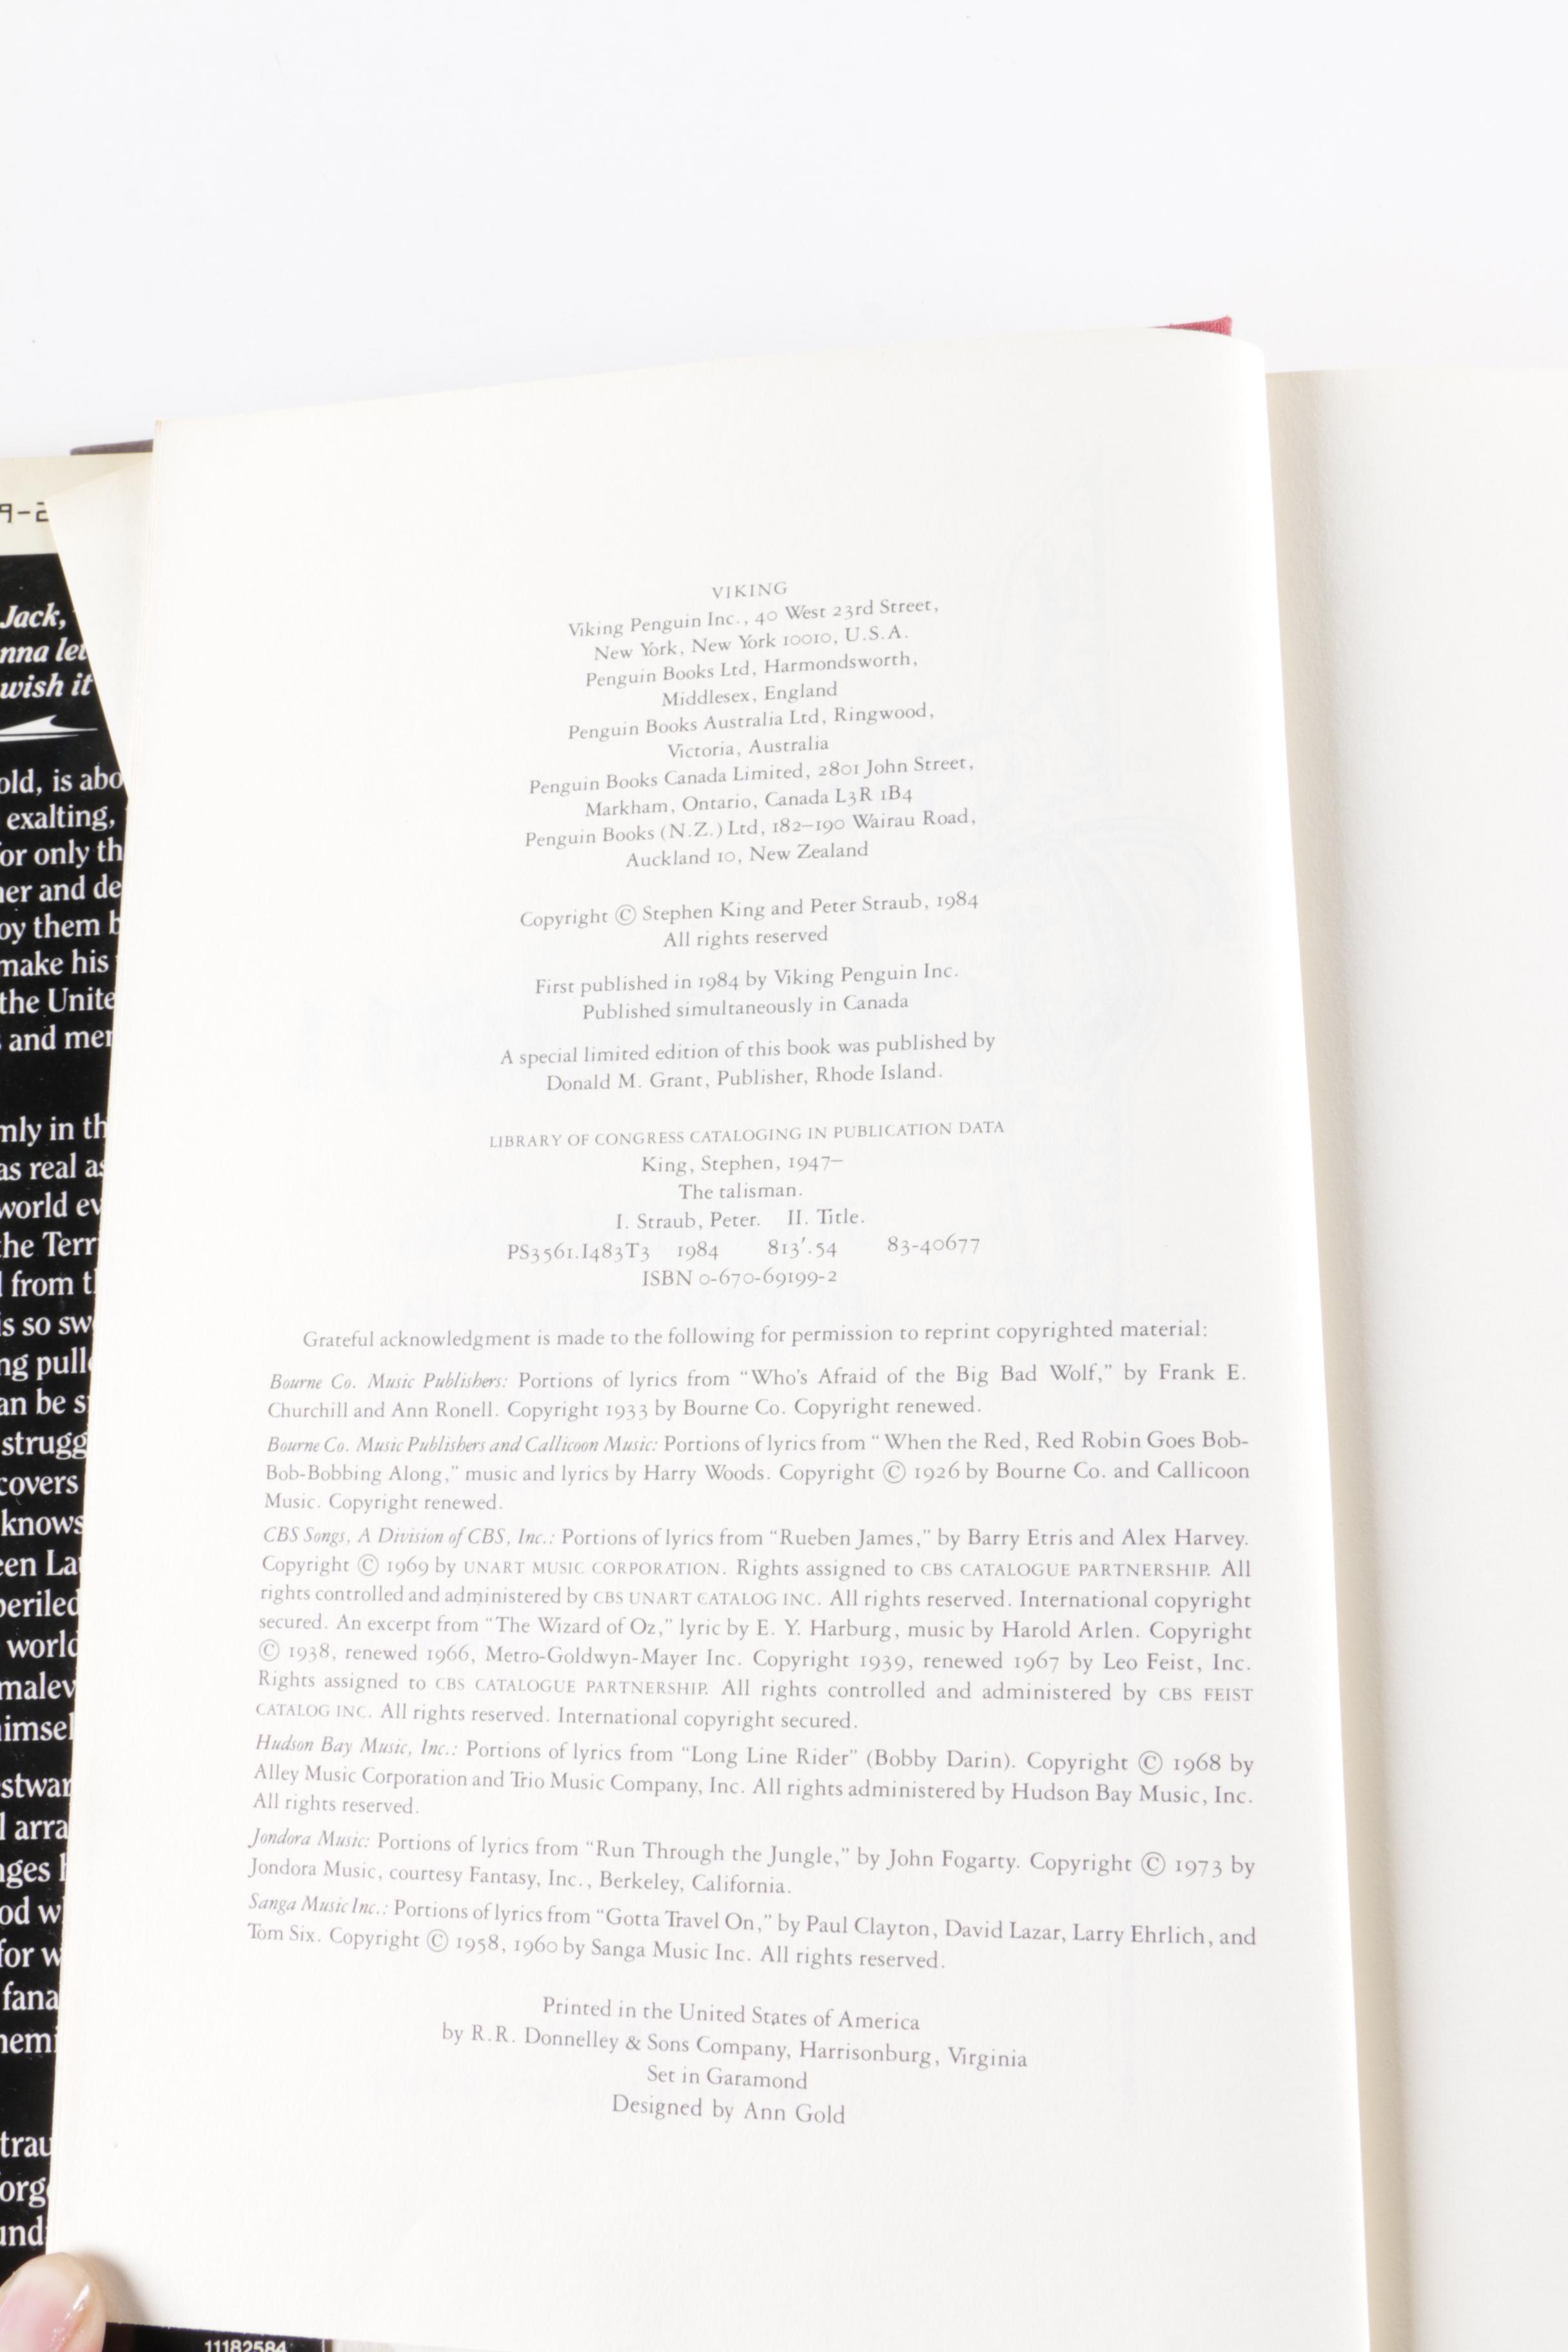 9-2
Jack,
nna let
wish it
old, is abo
exalting,
for only th
her and de
oy them b
make his
the Unite
and mer
mly in th
as real as
world ev
the Terr
from t
is so sw
ng pull
an be s
strugg
covers
knows
een La
periled
world
malev
imsel
stwar
l arra
nges h
od w
for w
fana
hemi
trau
orge
und
11182584
VIKING
Viking Penguin Inc., 40 West 23rd Street,
New York, New York 10010, U.S.A.
Penguin Books Ltd, Harmondsworth,
Middlesex, England
Penguin Books Australia Ltd, Ringwood,
Victoria, Australia
Penguin Books Canada Limited, 2801 John Street,
Markham, Ontario, Canada L3R 1B4
Penguin Books (N.Z.) Ltd, 182–190 Wairau Road,
Auckland 10, New Zealand
Copyright © Stephen King and Peter Straub, 1984
All rights reserved
First published in 1984 by Viking Penguin Inc.
Published simultaneously in Canada
A special limited edition of this book was published by
Donald M. Grant, Publisher, Rhode Island.
LIBRARY OF CONGRESS CATALOGING IN PUBLICATION DATA
King, Stephen, 1947–
The talisman.
I. Straub, Peter. II. Title.
PS3561.I483T3 1984 813′.54 83-40677
ISBN 0-670-69199-2
Grateful acknowledgment is made to the following for permission to reprint copyrighted material:
Bourne Co. Music Publishers: Portions of lyrics from “Who's Afraid of the Big Bad Wolf,” by Frank E.
Churchill and Ann Ronell. Copyright 1933 by Bourne Co. Copyright renewed.
Bourne Co. Music Publishers and Callicoon Music: Portions of lyrics from “When the Red, Red Robin Goes Bob-
Bob-Bobbing Along,” music and lyrics by Harry Woods. Copyright © 1926 by Bourne Co. and Callicoon
Music. Copyright renewed.
CBS Songs, A Division of CBS, Inc.: Portions of lyrics from “Rueben James,” by Barry Etris and Alex Harvey.
Copyright © 1969 by UNART MUSIC CORPORATION. Rights assigned to CBS CATALOGUE PARTNERSHIP. All
rights controlled and administered by CBS UNART CATALOG INC. All rights reserved. International copyright
secured. An excerpt from “The Wizard of Oz,” lyric by E. Y. Harburg, music by Harold Arlen. Copyright
© 1938, renewed 1966, Metro-Goldwyn-Mayer Inc. Copyright 1939, renewed 1967 by Leo Feist, Inc.
Rights assigned to CBS CATALOGUE PARTNERSHIP. All rights controlled and administered by CBS FEIST
CATALOG INC. All rights reserved. International copyright secured.
Hudson Bay Music, Inc.: Portions of lyrics from “Long Line Rider” (Bobby Darin). Copyright © 1968 by
Alley Music Corporation and Trio Music Company, Inc. All rights administered by Hudson Bay Music, Inc.
All rights reserved.
Jondora Music: Portions of lyrics from “Run Through the Jungle,” by John Fogarty. Copyright © 1973 by
Jondora Music, courtesy Fantasy, Inc., Berkeley, California.
Sanga Music Inc.: Portions of lyrics from “Gotta Travel On,” by Paul Clayton, David Lazar, Larry Ehrlich, and
Tom Six. Copyright © 1958, 1960 by Sanga Music Inc. All rights reserved.
Printed in the United States of America
by R.R. Donnelley & Sons Company, Harrisonburg, Virginia
Set in Garamond
Designed by Ann Gold